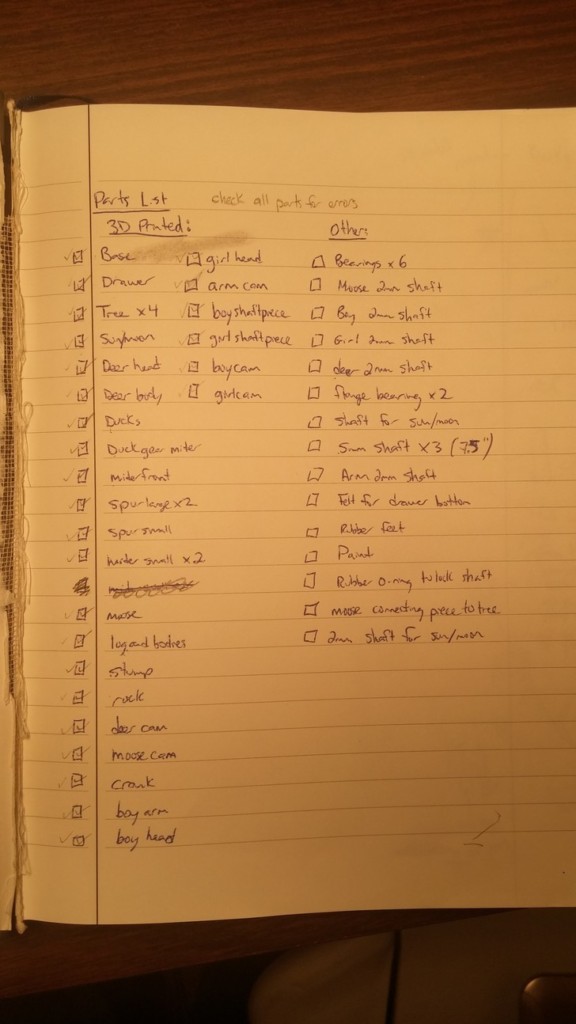 Parts List check all parts for errors
3D Printed: Other:
Base girl head Bearings x 6
Drawer arm cam Moose 2mm shaft
Tree x4 boy shaft piece Boy 2mm shaft
Sun/moon girl shaft piece Girl 2mm shaft
Deer head boy cam deer 2mm shaft
Deer body girl cam flange bearing x 2
Ducks shaft for sun/moon
Duck gear miter 5mm shaft x3 (7.5")
miter front Arm 2mm shaft
Spur large x2 Felt for drawer bottom
Spur small Rubber feet
miter small x2 Paint
Rubber O-ring to lock shaft
moose moose connecting piece to tree
log and bodies 2mm shaft for sun/moon
stump
rock
deer cam
moose cam
crank
boy arm
boy head